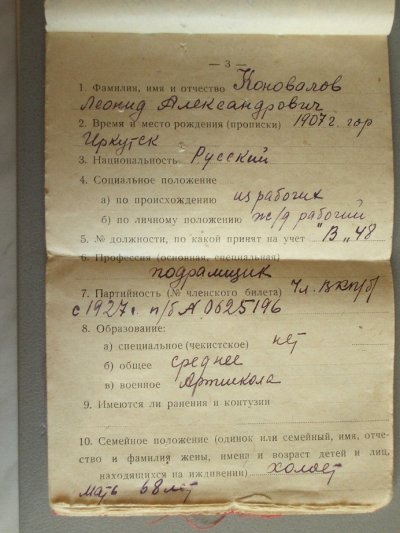 — 3 —
1. Фамилия, имя и отчество Коновалов
Леонид Александрович
2. Время и место рождения (прописки) 1907 г. гор
Иркутск
3. Национальность Русский
4. Социальное положение
а) по происхождению из рабочих
б) по личному положению ж/д рабочий
5. № должности, по какой принят на учет "В„ 48
6. Профессия (основная, специальная)
7. Партийность (№ членского билета) Чл. ВКП/б/
с 1927 г. п/б А 0625196
8. Образование:
а) специальное (чекистское) нет
б) общее среднее
в) военное Артшкола
9. Имеются ли ранения и контузии
10. Семейное положение (одинок или семейный, имя, отче-
ство и фамилия жены, имена и возраст детей и лиц,
находящихся на иждивении) холост
мать 68 лет